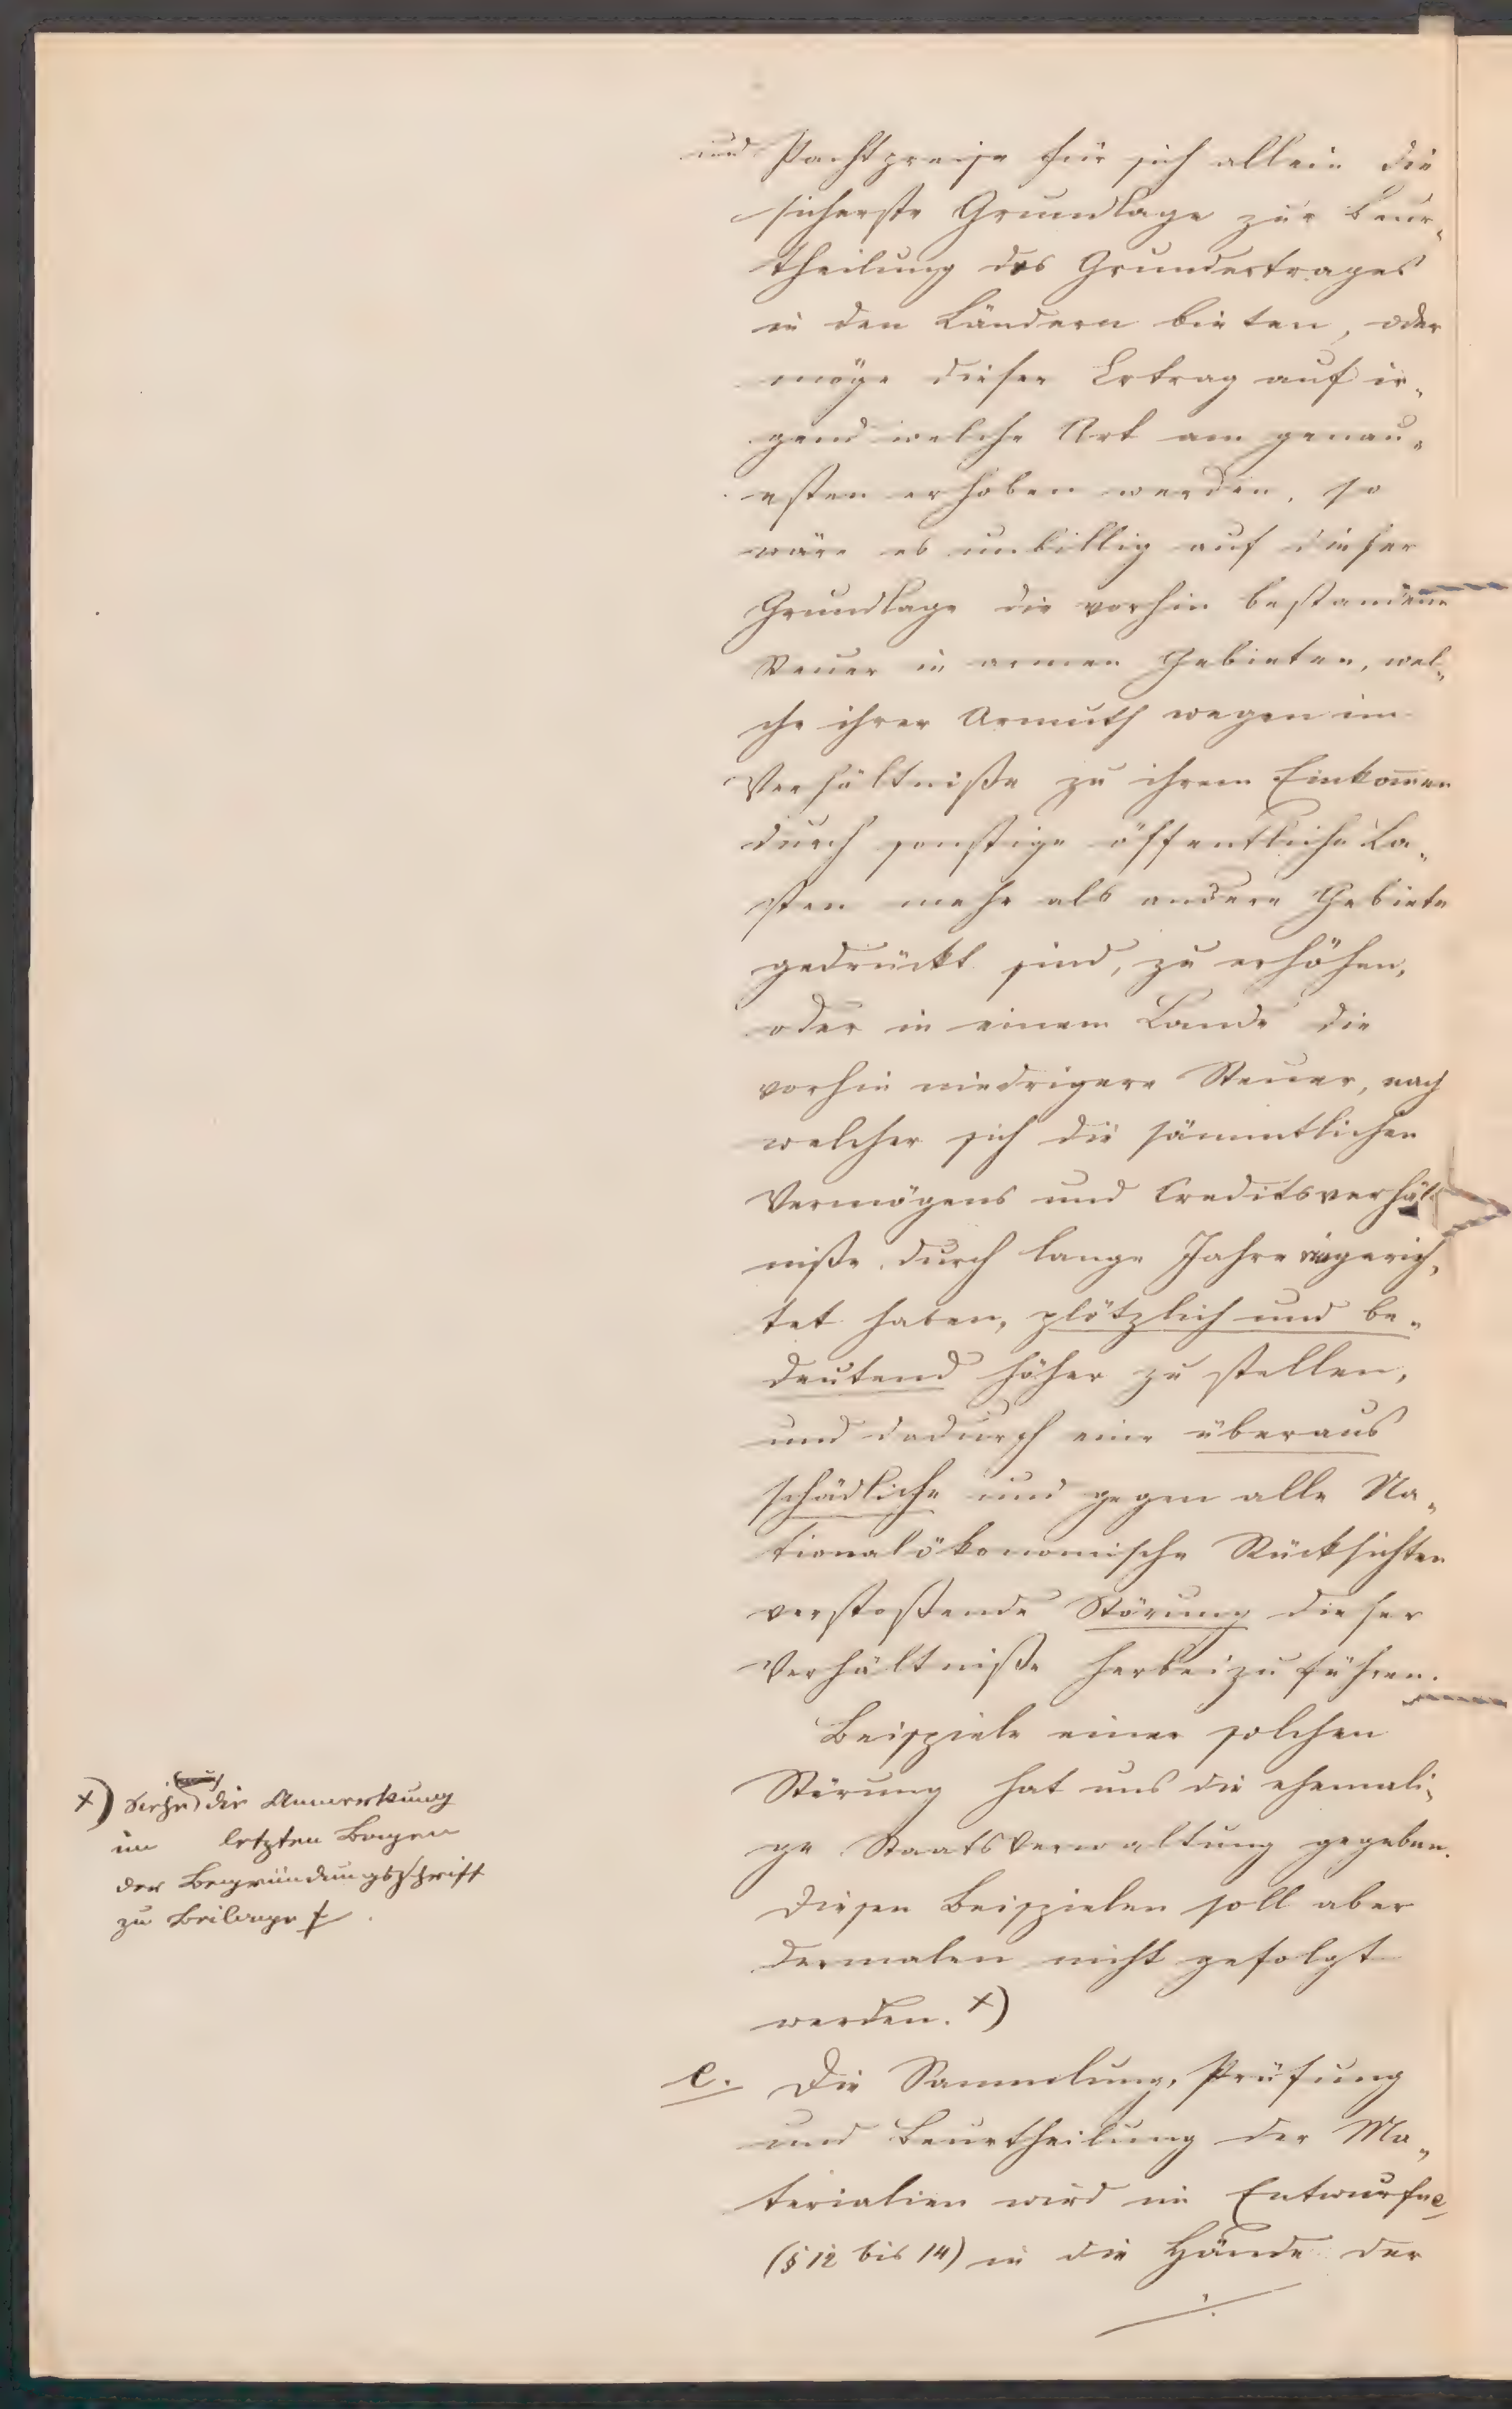 und Pachtpreise für sich allein die
sicherste Grundlage zur Beur„
theilung des Grundertrages
in den Ländern bieten, oder
möge dieser Ertrag auf ir„
gend welche Art am genau„
esten erhoben werden, so
wäre es unbillig auf dieser
Grundlage die vorhin bestandene
Steuer in armen Gebieten, wel„
che ihrer Armuth wegen im
Verhältniße zu ihrem Einkom̄en
durch sonstige öffentliche La„
sten mehr als andere Gebiete
gedrückt sind, zu erhöhen,
oder in einem Lande die
vorhin niedrigere Steuer, nach
welcher sich die sämmtlichen
Vermögens und Creditsverhält
niße durch lange Jahre eingerich„
tet haben, plötzlich und be„
deutend höher zu stellen,
und dadurch eine überaus
schädliche und gegen alle Na„
tionalökonomische Rücksichten
verstoßende Störung dieser
Verhältniße herbeizuführen.
Beispiele einer solchen
Störung hat uns die ehemali„
ge Staatsverwaltung gegeben.
Diesen Beispielen soll aber
dermalen nicht gefolgt
werden. x)
x) Siehe die Anmerkung
im letzten Bogen
der Begründungsschrift
zu Beilage f.
e. Die Sammlung, Prüfung
und Beurtheilung der Ma„
terialien wird im Entwurfe e
(§ 12 bis 14) in die Hände der
./.